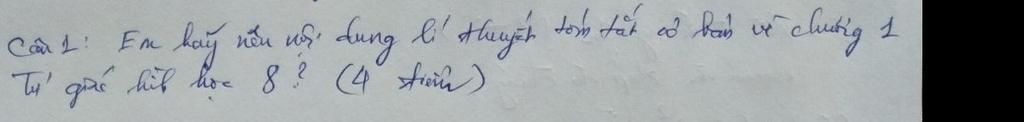 Câu 1: Em hãy nêu nội dung lí thuyết tóm tắt cơ bản về chương 1
Tứ giác hình học 8? (4 điểm)